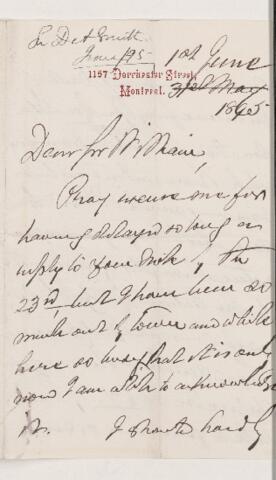 Sir D A Smith
June 1/95
1st June
1157 Dorchester Street,
Montreal.
31st May
1895
Dear Sir William,
Pray excuse me for
having delayed so long in
reply to your note of the
23rd, but I have been so
much out of town and while
here so busy that it is only
now I am able to acknowledge
it. I should hardly